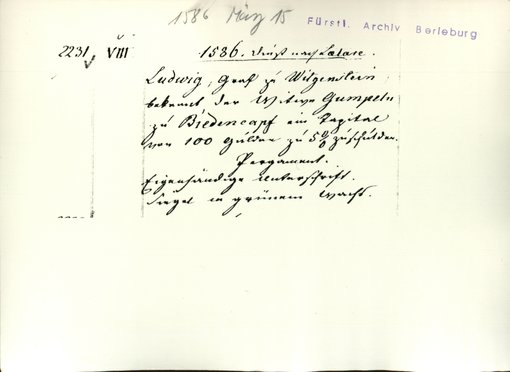 1586 März 15
Fürstl. Archiv Berleburg
2231 VIII
1586. Dinst. nach Latare.
Ludwig, Graf zu Witgenstein,
bekennt der Witwe Gumpeln
zu Biedencapf ein Capital
von 100 Gülden zu 5% zu schulden.
Pergament.
Eigenhändige Unterschrift.
Siegel in grünem Wachs.